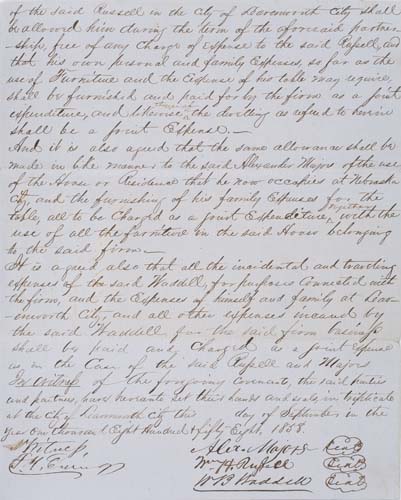 of the said Russell in the City of Leavenworth City shall
be allowed him during the term of the aforesaid partner-
ship, free of any Charge of Expense to the said Russell, and
that his own personal and family Expenses, so far as the
use of Furniture and the Expense of his table may require,
shall be furnished and paid for by the firm as a joint
expenditure, and likewise the dwelling as refered to herein
shall be a joint Expense.—
And it is also agreed that the same allowance shall be
made in like manner to the said Alexander Majors of the use
of the House or Residence that he now occupies at Nebraska
City, and the furnishing of his family Expenses for the
table, all to be Charged as a joint Expenditure, with the
use of all the furniture in the said House belonging
to the said firm—
It is agreed also that all the incidental and traveling
expenses of the said Waddell, for purposes connected with
the firm, and the Expenses of himself and family at Leav-
enworth City, and all other expenses incured by
the said Waddell for the said firm business
shall be paid and Charged as a joint expense
as in the Case of the said Russell and Majors
In witness of the foregoing Covenants, the said parties
and partners, have hereunto set their hands and seals, in triplicate
at the City Leavenworth City the day of September in the
year One thousand Eight Hundred & fifty Eight, 1858.
Witness, Alexr Majors Seal
Wm H Russell Seal
W B Waddell Seal